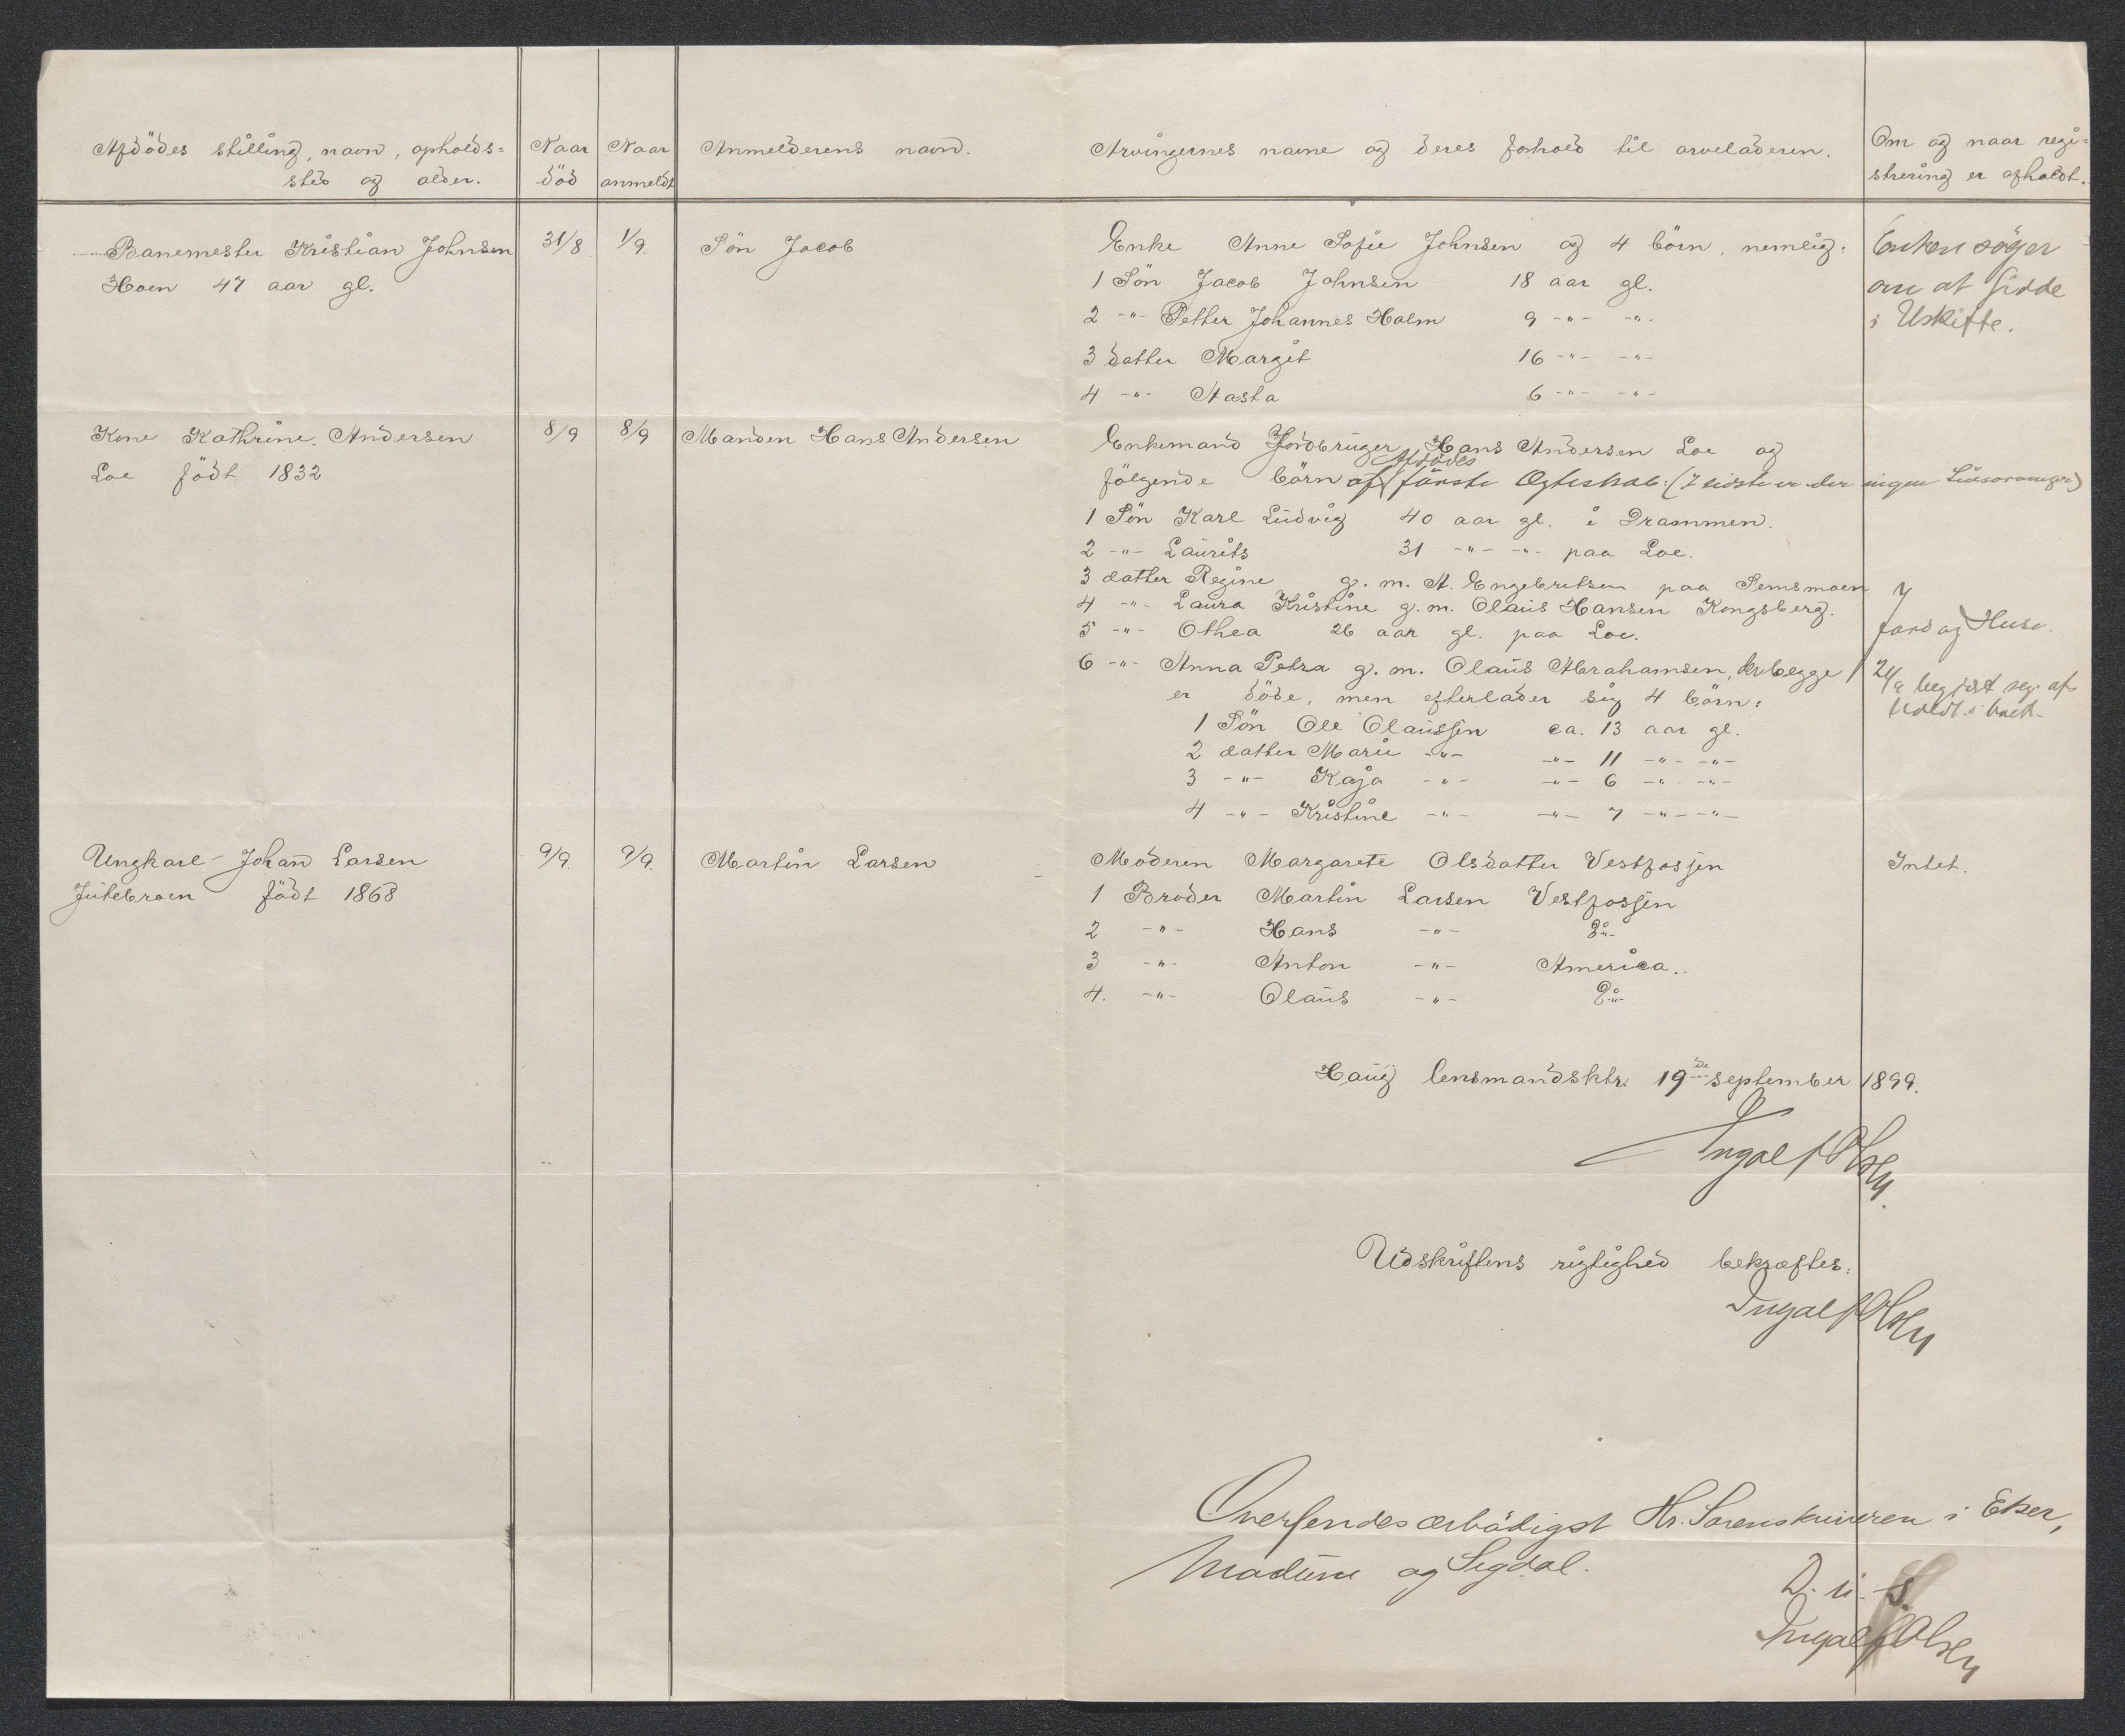 Afdödes stilling, navn, opholds=
sted og alder.
Naar
död
Naar
anmeldt
Anmelderens navn.
Arvingernes navne og deres forhold til arveladeren.
Om og naar regi=
strering er afholdt.
Banemester Kristian Johnsen
Hoen 47 aar gl.
31/8.
1/9.
Sön Jacob
Enke Anne Sofie Johnsen og 4 börn, nemlig:
1 Sön Jacob Johnsen 18 aar gl.
2 -"- Petter Johannes Holm 9 -"- -"-
3 datter Margit 16 -"- -"-
4 -"- Aasta 6 -"- -"-
Enken söger
om at sidde
i Uskifte.
Kone Kathrine Andersen
Loe födt 1832
8/9
8/9
Manden Hans Andersen
Enkemand Jordbruger Hans Andersen Loe og
fölgende börn af Afdödes förste Ægteskab: (I sidste er der ingen Livsarvinger)
1 Sön Karl Ludvig 40 aar gl. i Drammen.
2 -"- Laurits 31 -"- -"- paa Loe.
3 datter Regine g. m. A. Engebretsen paa Semsmoen
4 -"- Laura Kristine g. m. Olaus Hansen Kongsberg.
5 -"- Othea 26 aar gl. paa Loe.
6 -"- Anna Petra g. m. Olaus Abrahamsen, der begge
er döde, men efterlader sig 4 börn:
1 Sön Ole Olaussen ca. 13 aar gl.
2 datter Marie -"- -"- 11 -"- -"-
3 -"- Kaja -"- -"- 6 -"- -"-
4 -"- Kristine -"- -"- 7 -"- -"-
Jord og Huse.
21/9 begjært reg. af-
holdt.
Ungkarl Johan Larsen
Jutebroen födt 1868
9/9.
9/9.
Martin Larsen
Moderen Margarete Olsdatter Vestfossen
1 Broder Martin Larsen Vestfossen
2 -"- Hans -"- Do
3 -"- Anton -"- America.
4. -"- Olaus -"- Do
Intet.
Haug lensmandsktr. 19de september 1899.
Ingolf Olsen.
Udskriftens rigtighed bekræftes:
Ingolf Olsen
Oversendes ærbödigst Hr. Sorenskriveren i Eker,
Modum og Sigdal.
D. u. s.
Ingolf Olsen